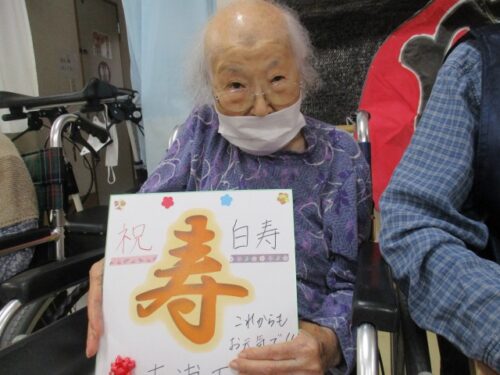 祝
寿
白寿
これからも
お元気で!!